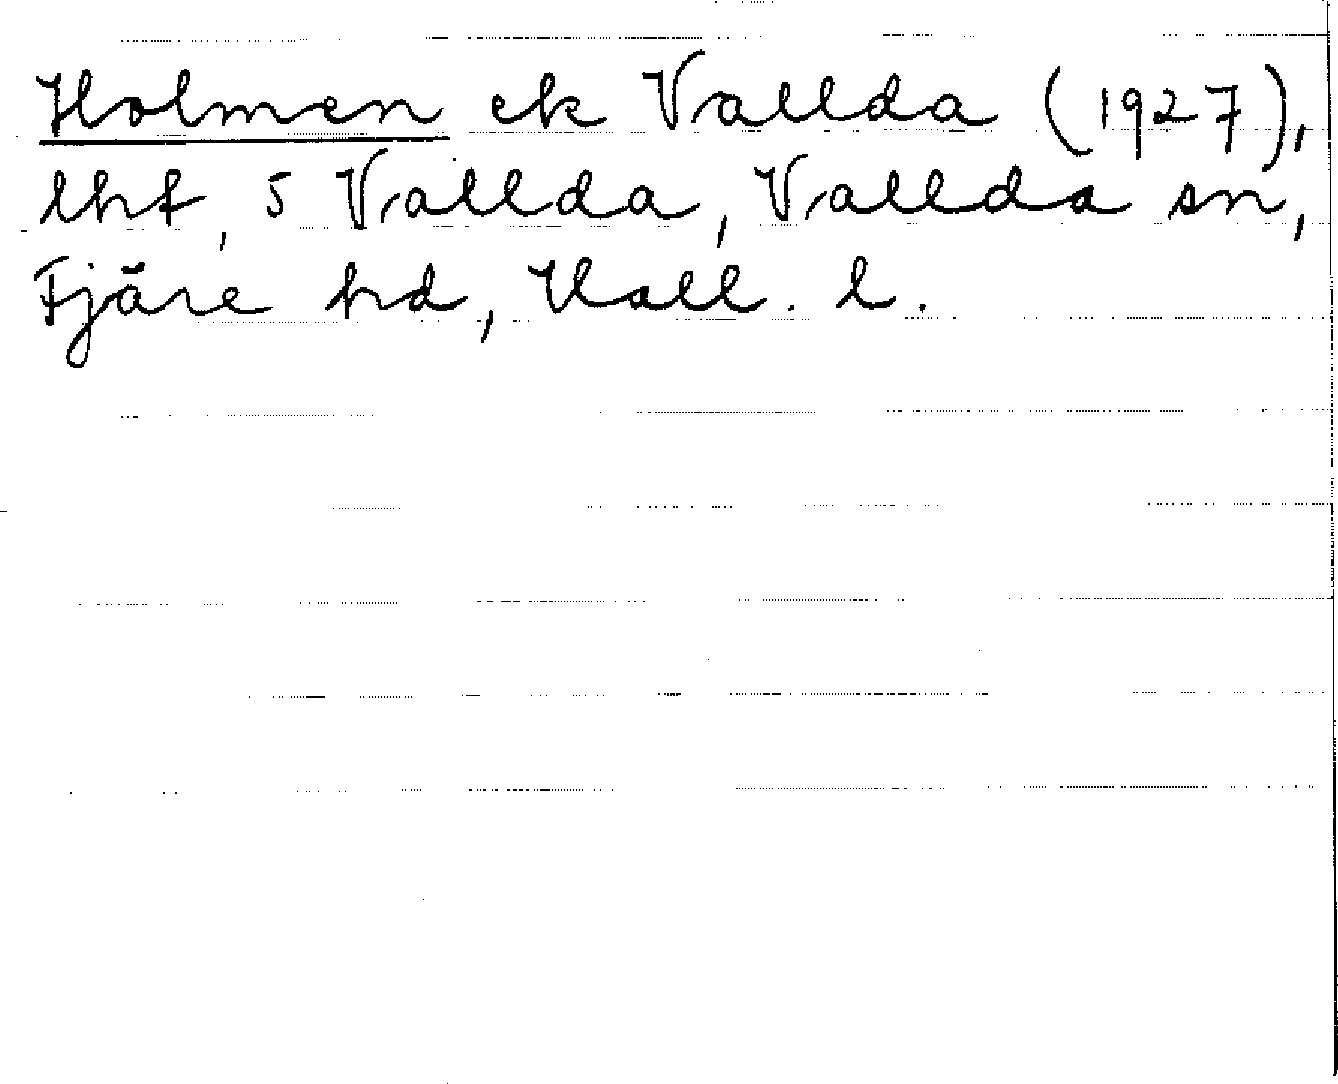 Holmen ek Vallda (1927),
lhf, 5 Vallda, Vallda sn,
Fjäre hd, Hall. l.